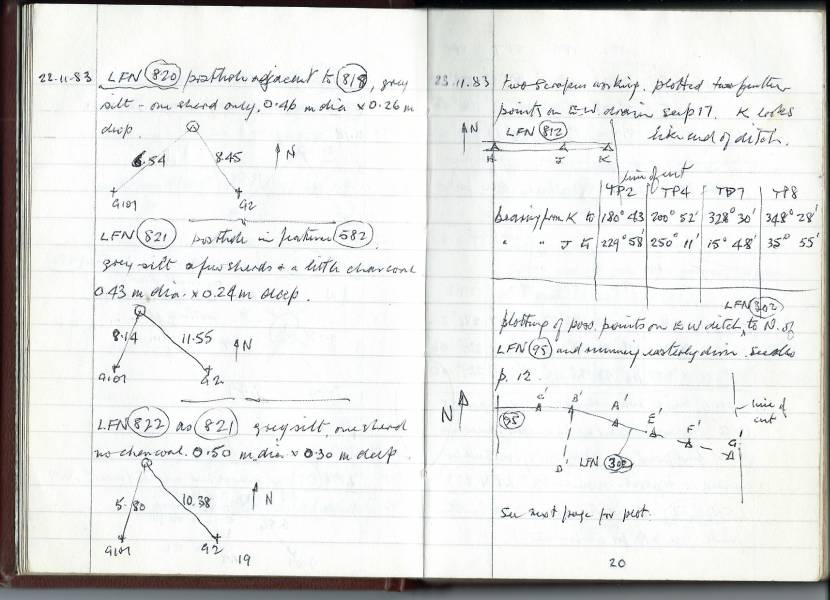 22.11.83 LFN 820 posthole adjacent to 818, grey
silt - one sherd only. 0.46 m dia x 0.26 m
deep.
N
6.54 8.45
G101 G2
LFN 821 posthole in feature 582.
grey silt a few sherds & a little charcoal
0.43 m dia. x 0.24 m deep.
8.14 11.55 N
G101 G2
LFN 822 as 821 grey silt, one sherd
no charcoal. 0.50 m dia x 0.30 m deep.
5.80 10.38 N
G101 G2
19
23.11.83 two scrapers working. plotted two further
points on E-W drain see p 17. K looks
N LFN 812 like end of ditch.
H J K
line of cut
TP2 TP4 TP7 TP8
bearing from K to 180° 43 200° 52' 328° 30' 348° 28'
" " J to 229° 58' 250° 11' 15° 48' 35° 55'
LFN 302
plotting of poss. points on E W ditch, to N. of
LFN 95 and running easterly. see also
p. 12.
N C' B' A' E' F' G' line of
cut
95
D' LFN 302
See next page for plot.
20